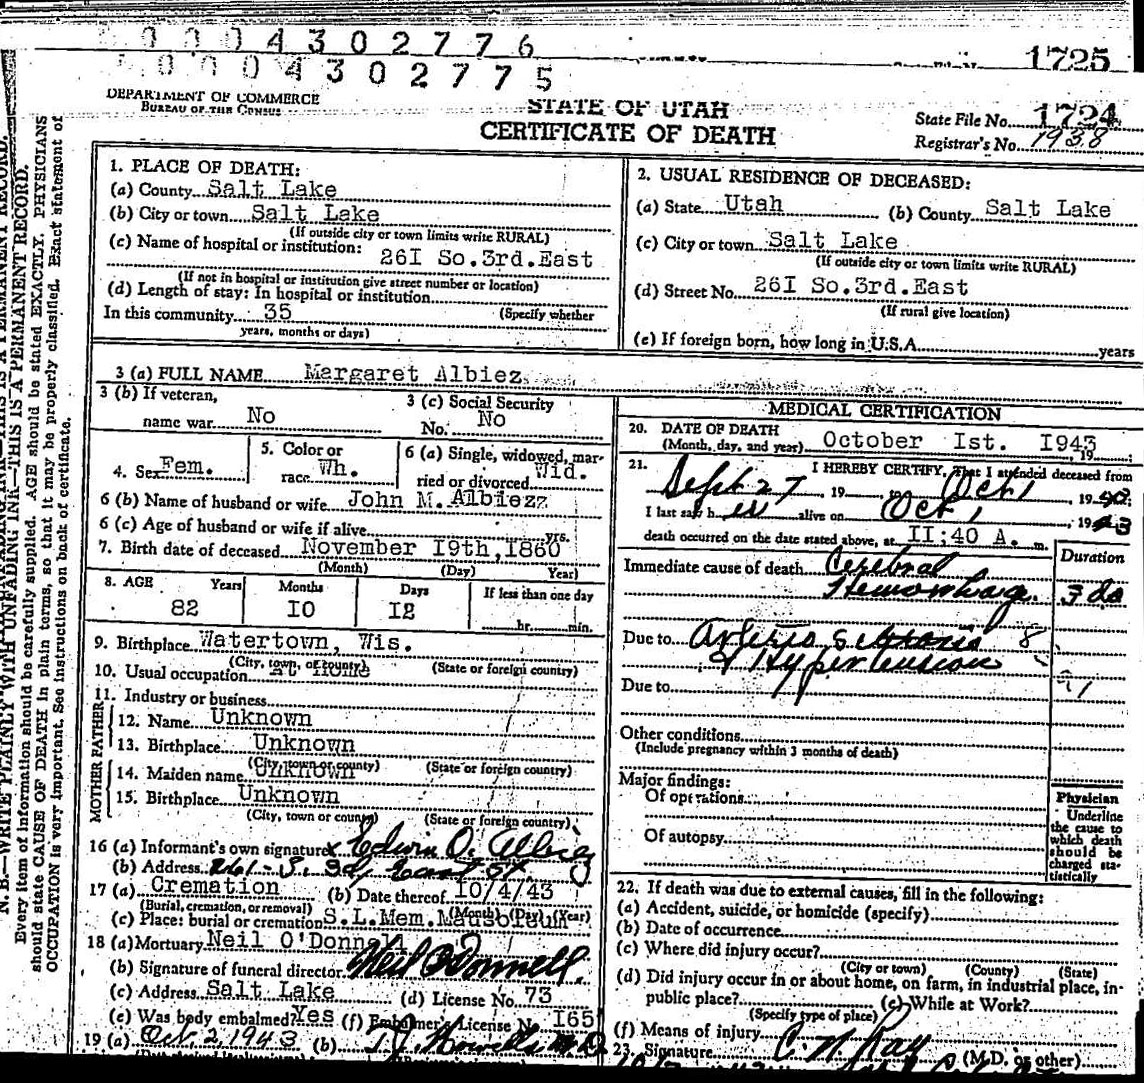 0004302776
1725
0004302775
DEPARTMENT OF COMMERCE
BUREAU OF THE CENSUS
STATE OF UTAH
CERTIFICATE OF DEATH
State File No. 1724
Registrar's No. 1938
N. B.—WRITE PLAINLY WITH UNFADING INK—THIS IS A PERMANENT RECORD.
Every item of information should be carefully supplied. AGE should be stated EXACTLY. PHYSICIANS
should state CAUSE OF DEATH in plain terms, so that it may be properly classified. Exact statement of
OCCUPATION is very important. See instructions on back of certificate.
1. PLACE OF DEATH:
(a) County Salt Lake
(b) City or town Salt Lake
(If outside city or town limits write RURAL)
(c) Name of hospital or institution:
26I So.3rd.East
(If not in hospital or institution give street number or location)
(d) Length of stay: In hospital or institution
In this community 35 (Specify whether
years, months or days)
2. USUAL RESIDENCE OF DECEASED:
(a) State Utah (b) County Salt Lake
(c) City or town Salt Lake
(If outside city or town limits write RURAL)
(d) Street No. 26I So.3rd.East
(If rural give location)
(e) If foreign born, how long in U.S.A. years
3 (a) FULL NAME Margaret Albiez
3 (b) If veteran,
name war No
3 (c) Social Security
No. No
4. Sex Fem.
5. Color or
race Wh.
6 (a) Single, widowed, mar-
ried or divorced Wid.
6 (b) Name of husband or wife John M. Albiezz
6 (c) Age of husband or wife if alive yrs.
7. Birth date of deceased November I9th, I860
(Month) (Day) Year)
8. AGE Years Months Days If less than one day
82 IO I2 hr. min.
9. Birthplace Watertown, Wis.
(City, town, or county) (State or foreign country)
10. Usual occupation At Home
11. Industry or business
FATHER
12. Name Unknown
13. Birthplace Unknown
(City, town or county) (State or foreign country)
MOTHER
14. Maiden name Unknown
15. Birthplace Unknown
(City, town or county) (State or foreign country)
16 (a) Informant's own signature x Edwin O. Albiez
(b) Address 261 - S. 3d East St
17 (a) Cremation (b) Date thereof IO/4/43
(Burial, cremation, or removal) (Month) (Day) (Year)
(c) Place: burial or cremation S.L.Mem. Mausoleum
18 (a) Mortuary Neil O'Donnell
(b) Signature of funeral director Neil O'Donnell.
(c) Address Salt Lake (d) License No. 73
(e) Was body embalmed? Yes (f) Embalmer's License N. I65
19 (a) Oct. 2, 1943 (b) T. J. Howells M.D.
MEDICAL CERTIFICATION
20. DATE OF DEATH
(Month, day, and year) October Ist. I943, 19
21. I HEREBY CERTIFY, That I attended deceased from
Sept 27, 19 Oct 1 19
I last saw her alive on Oct 1, 1943
death occurred on the date stated above, at II:40 A. m.
Duration
Immediate cause of death Cerebral
Hemorrhage. 3 da
Due to Arterio Sclerosis 8
& Hypertension
Due to
Other conditions
(Include pregnancy within 3 months of death)
Major findings:
Of operations
Of autopsy
Physician
Underline
the cause to
which death
should be
charged sta-
tistically
22. If death was due to external causes, fill in the following:
(a) Accident, suicide, or homicide (specify)
(b) Date of occurrence
(c) Where did injury occur?
(City or town) (County) (State)
(d) Did injury occur in or about home, on farm, in industrial place, in-
public place? (e) While at Work?
(Specify type of place)
(f) Means of injury
23. Signature C. N. Ray (M.D. or other)